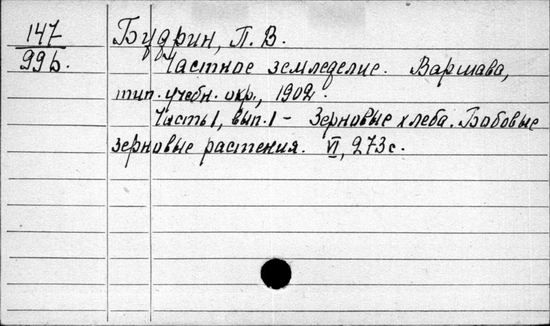 147
99б.
Будрин, П. В.
Частное земледелие. Варшава,
тип. учебн. окр., 1902.
Часть 1, вып. 1 - Зерновые хлеба. Бобовые
зерновые растения. VI, 273 с.